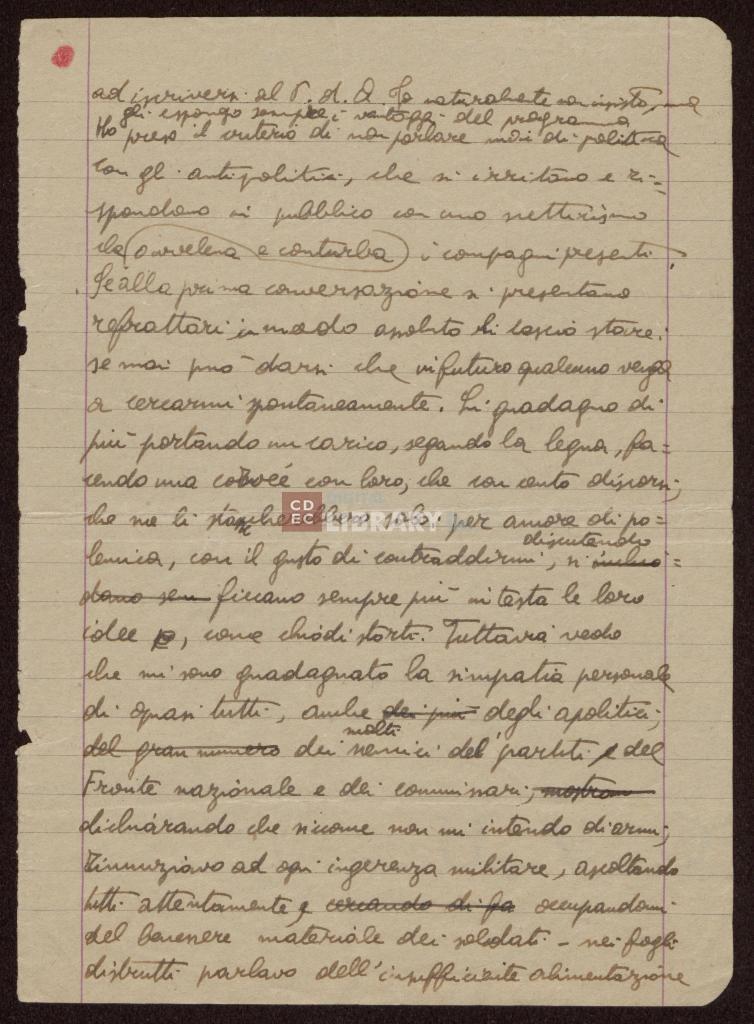 ad iscriversi al P. d. A. Io naturalmente non insisto, ma
gli espongo sempre i vantaggi del programma
Ho preso il criterio di non parlare mai di politica
con gli antipolitici, che si irritano e ri=
spondono in pubblico con uno scetticismo
che avvelena e conturba i compagni presenti.
Se alla prima conversazione si presentano
refrattari in modo assoluto li lascio stare;
se mai può darsi che in futuro qualcuno venga
a cercarmi spontaneamente. Li guadagno di
più portando un carico, segando la legna, fa=
cendo una corvée con loro, che con cento discorsi,
che me li
CDEC DIGITAL LIBRARY
solo per amore di po=
lemica, con il gusto di contraddirmi, si
discutendo
ficcano sempre più in testa le loro
idee, come chiodi storti. Tuttavia vedo
che mi sono guadagnato la simpatia personale
di quasi tutti, anche dei più degli apolitici,
del gran numero dei molti nemici dei partiti e del
Fronte nazionale e dei commissari,
dichiarando che siccome non mi intendo di armi,
rinunziavo ad ogni ingerenza militare, ascoltando
tutti attentamente, e cercando di fa occupandomi
del benessere materiale dei soldati - nei fogli
distrutti parlavo dell'insufficiente alimentazione